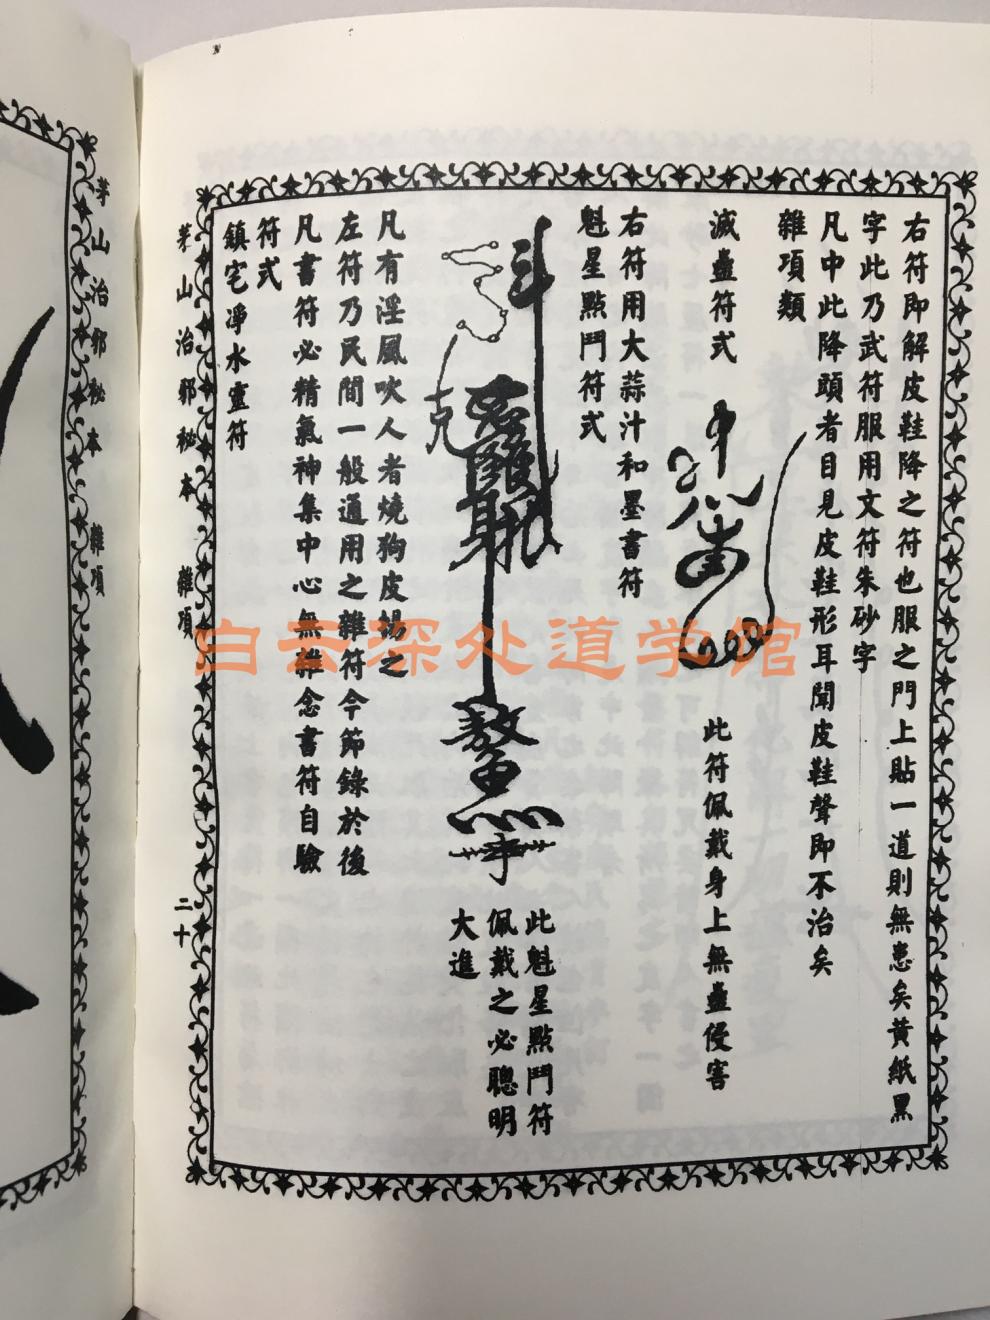 右符即解皮鞋降之符也服之門上貼一道則無患矣黃紙黑
字此乃武符服用文符朱砂字
凡中此降頭者目見皮鞋形耳聞皮鞋聲即不治矣
雜項類
滅蠱符式
此符佩戴身上無蠱侵害
右符用大蒜汁和墨書符
魁星點鬥符式
此魁星點鬥符
佩戴之必聰明
大進
凡有淫風吹人者燒狗皮揚之
左符乃民間一般通用之雜符今節錄於後
凡書符必精氣神集中心無雜念書符自驗
符式
鎮宅淨水靈符
茅山治邪秘本 雜項 二十
茅山治邪秘本 雜項
白云深处道学馆